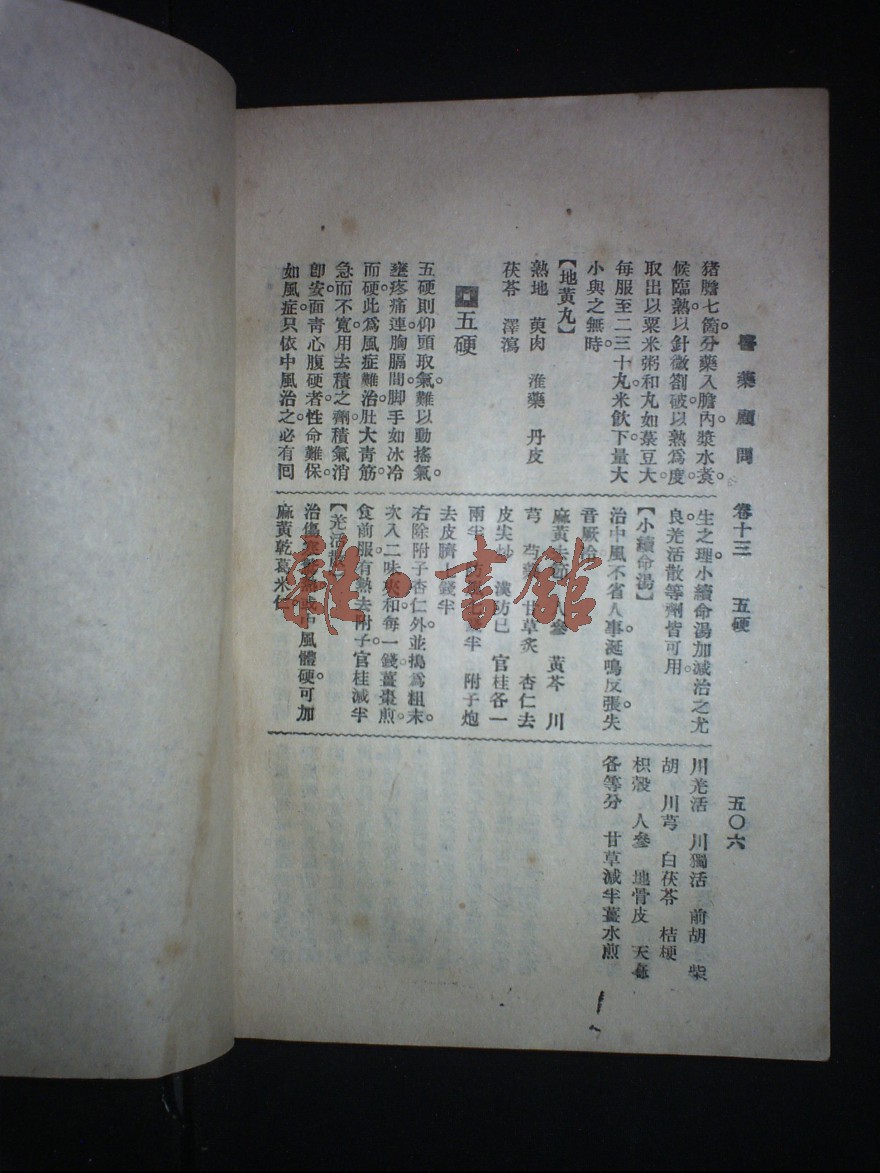 醫藥顧問　卷十三　五硬　五〇六
猪膽七箇。分藥入膽內。漿水煮。
候臨熟。以針微劄破。以熟爲度。
取出以粟米粥和丸。如菉豆大。
每服至二三十丸。米飲下。量大
小與之。無時。
【地黃丸】
熟地　萸肉　淮藥　丹皮
茯苓　澤瀉
五硬
五硬則仰頭取氣。難以動搖。氣
壅疼痛連胸膈間。脚手如冰冷
而硬。此爲風症難治。肚大青筋。
急而不寬。用去積之劑。積氣消
卽安。面青心腹硬者。性命難保。
如風症。只依中風治之。必有回
生之理。小續命湯加減治之。尤
良。羌活散等劑皆可用。
【小續命湯】
治中風不省人事。涎鳴反張。失
音厥冷
麻黃去節　人參　黃芩　川
芎　芍藥　甘草炙　杏仁去
皮尖炒　漢防己　官桂各一
兩半　防風　錢半　附子炮
去皮臍七錢半
右除附子杏仁外。並搗爲粗末。
次入二味夾和。每一錢。薑棗煎。
食前服。有熱去附子。官桂減半
【羌活散】
治傷寒 或中風體硬。可加
麻黃乾葛米仁
川羌活　川獨活　前胡　柴
胡　川芎　白茯苓　桔梗
枳殼　人參　地骨皮　天麻
各等分　甘草減半薑水煎
雜·書館